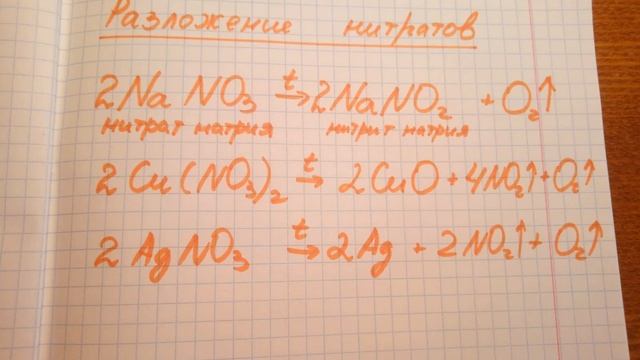 Разложение нитратов
2NaNO₃ →t 2NaNO₂ + O₂↑
нитрат натрия нитрит натрия
2Cu(NO₃)₂ →t 2CuO + 4NO₂↑ + O₂↑
2AgNO₃ →t 2Ag + 2NO₂↑ + O₂↑